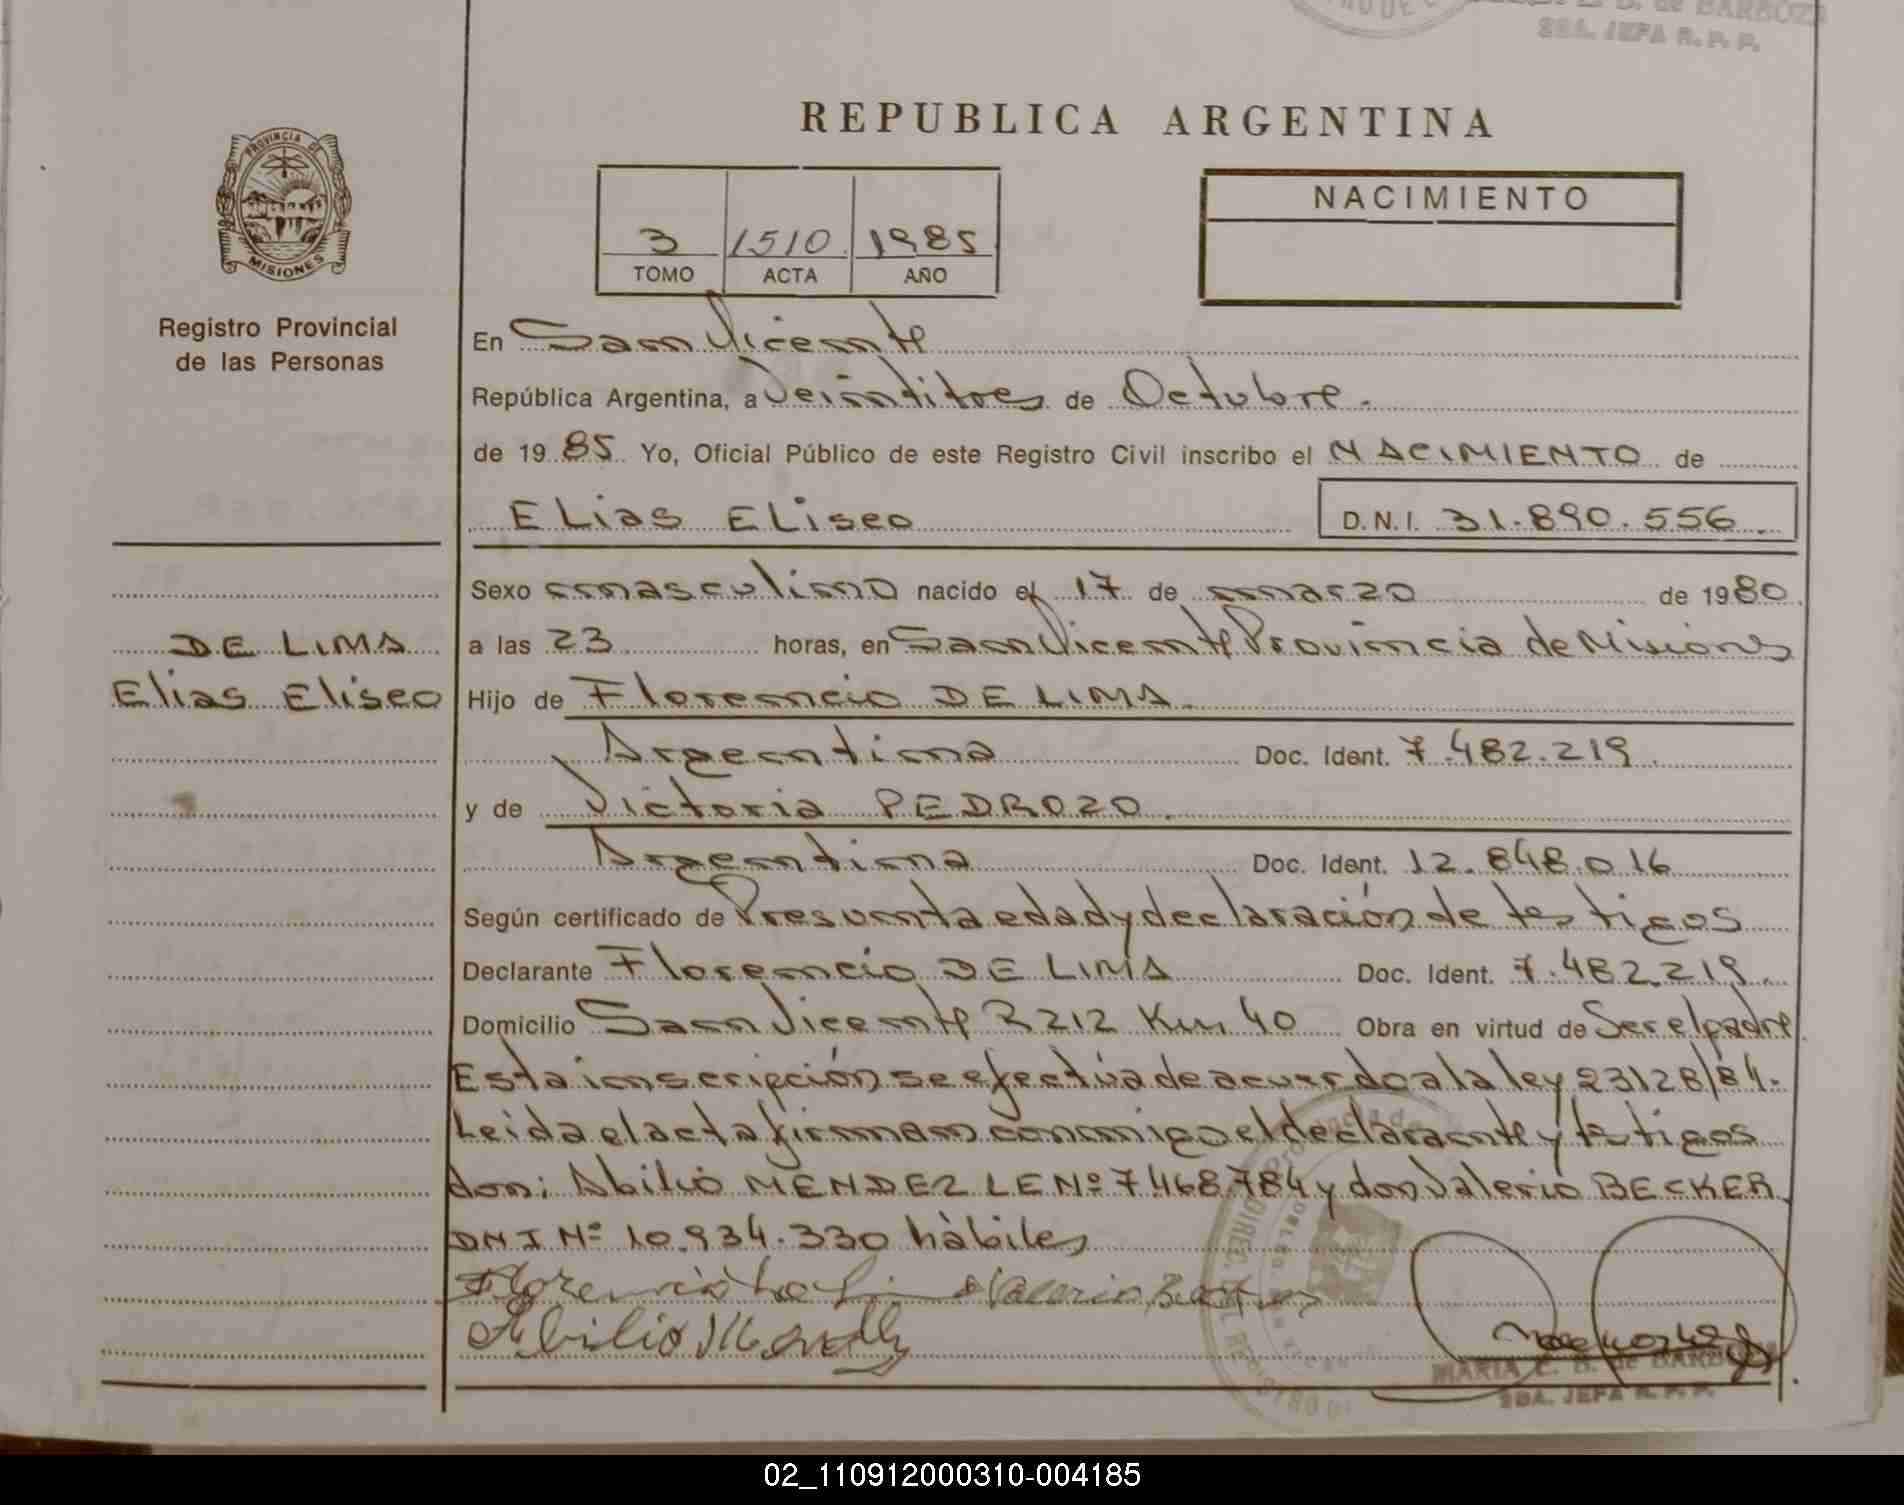 DE BARBOZA
SBA. JEFA R. P. P.
REPUBLICA ARGENTINA
PROVINCIA DE
MISIONES
Registro Provincial
de las Personas
3 1510 1985
TOMO ACTA AÑO
NACIMIENTO
En San Vicente
República Argentina, a Veintitres de Octubre.
de 1985 Yo, Oficial Público de este Registro Civil inscribo el NACIMIENTO de
ELias ELiseo D.N.I. 31.890.556.
Sexo masculino nacido el 17 de marzo de 1980
DE LIMA
Elias Eliseo
a las 23 horas, en San Vicente Provincia de Misiones
Hijo de Florencio DE LIMA.
Argentina Doc. Ident. 7.482.219.
y de Victoria PEDROZO.
Argentina Doc. Ident. 12.848.016
Según certificado de Presunta edad y declaración de testigos
Declarante Florencio DE LIMA Doc. Ident. 7.482.219.
Domicilio San Vicente R212 Km 40 Obra en virtud de Ser el padre
Esta inscripción se efectúa de acuerdo a la ley 23128/84.
Leida el acta firman conmigo el declarante y testigos
don: Abilio MENDEZ LE Nº 7.468.784 y don Valerio BECKER
DNI Nº 10.934.330 hàbiles
Florencio de Lima Valerio Becker
Abilio Mendez
MARIA E. B. de BARBOZA
SBA. JEFA R. P. P.
02_110912000310-004185